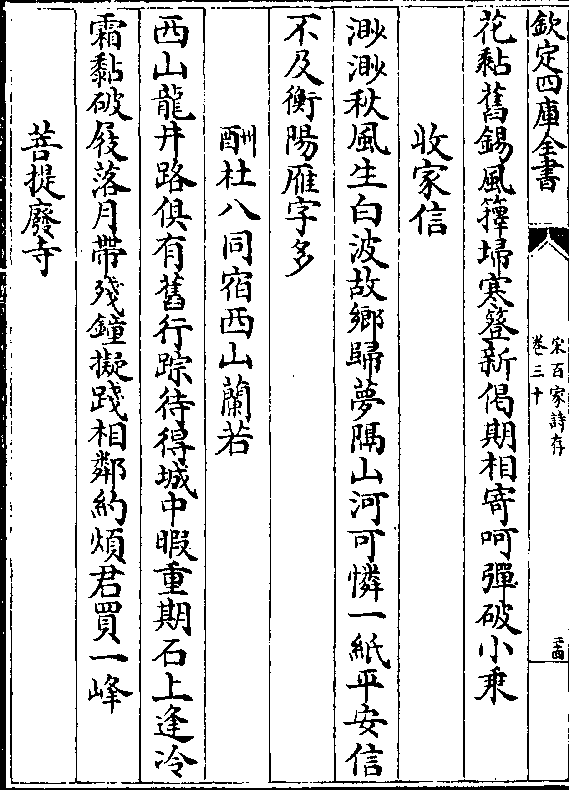 欽定四庫全書
宋百家詩存
卷三十
花黏舊錫風籜埽寒簦新偈期相寄呵彈破小乘
收家信
渺渺秋風生白波故鄉歸夢隔山河可憐一紙平安信
不及衡陽雁字多
酬杜八同宿西山蘭若
西山龍井路俱有舊行踪待得城中暇重期石上逢冷
霜黏破屐落月帶殘鐘擬踐相鄰約煩君買一峰
菩提廢寺